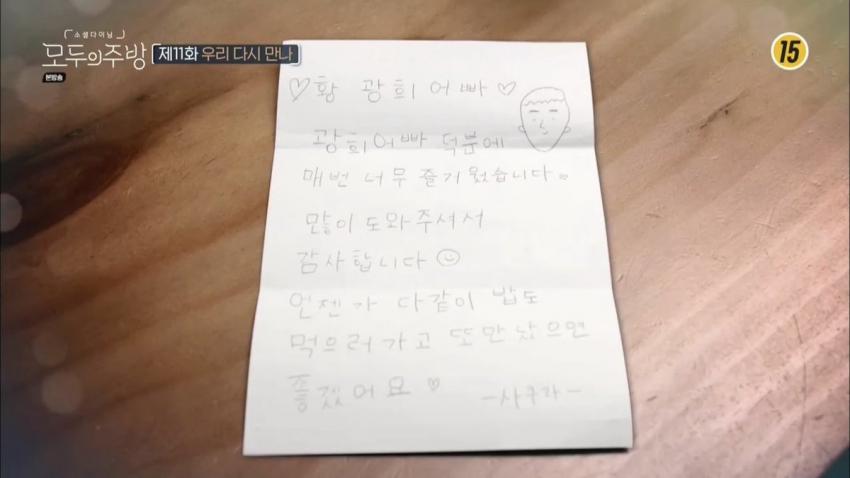 소셜다이닝
모두의주방
본방송
제11화 우리 다시 만나
15
♡황 광희 어빠♡
광희어빠 덕분에
매번 너무 즐거웠습니다
많이 도와주셔서
감사합니다
언젠가 다같이 밥도
먹으러가고 또만났으면
좋겠어요 ♡
-사쿠라-